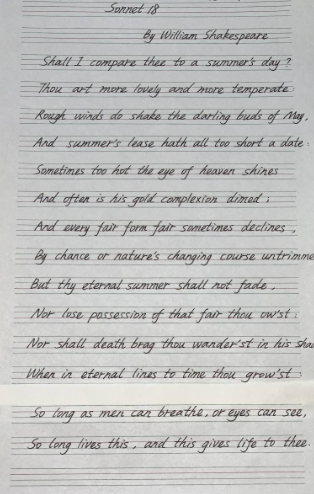 Sonnet 18
By William Shakespeare
Shall I compare thee to a summer's day?
Thou art more lovely and more temperate:
Rough winds do shake the darling buds of May,
And summer's lease hath all too short a date:
Sometimes too hot the eye of heaven shines
And often is his gold complexion dimed;
And every fair form fair sometimes declines,
By chance or nature's changing course untrimme
But thy eternal summer shall not fade,
Nor lose possession of that fair thou ow'st:
Nor shall death brag thou wander'st in his sha
When in eternal lines to time thou grow'st:
So long as men can breathe, or eyes can see,
So long lives this, and this gives life to thee.